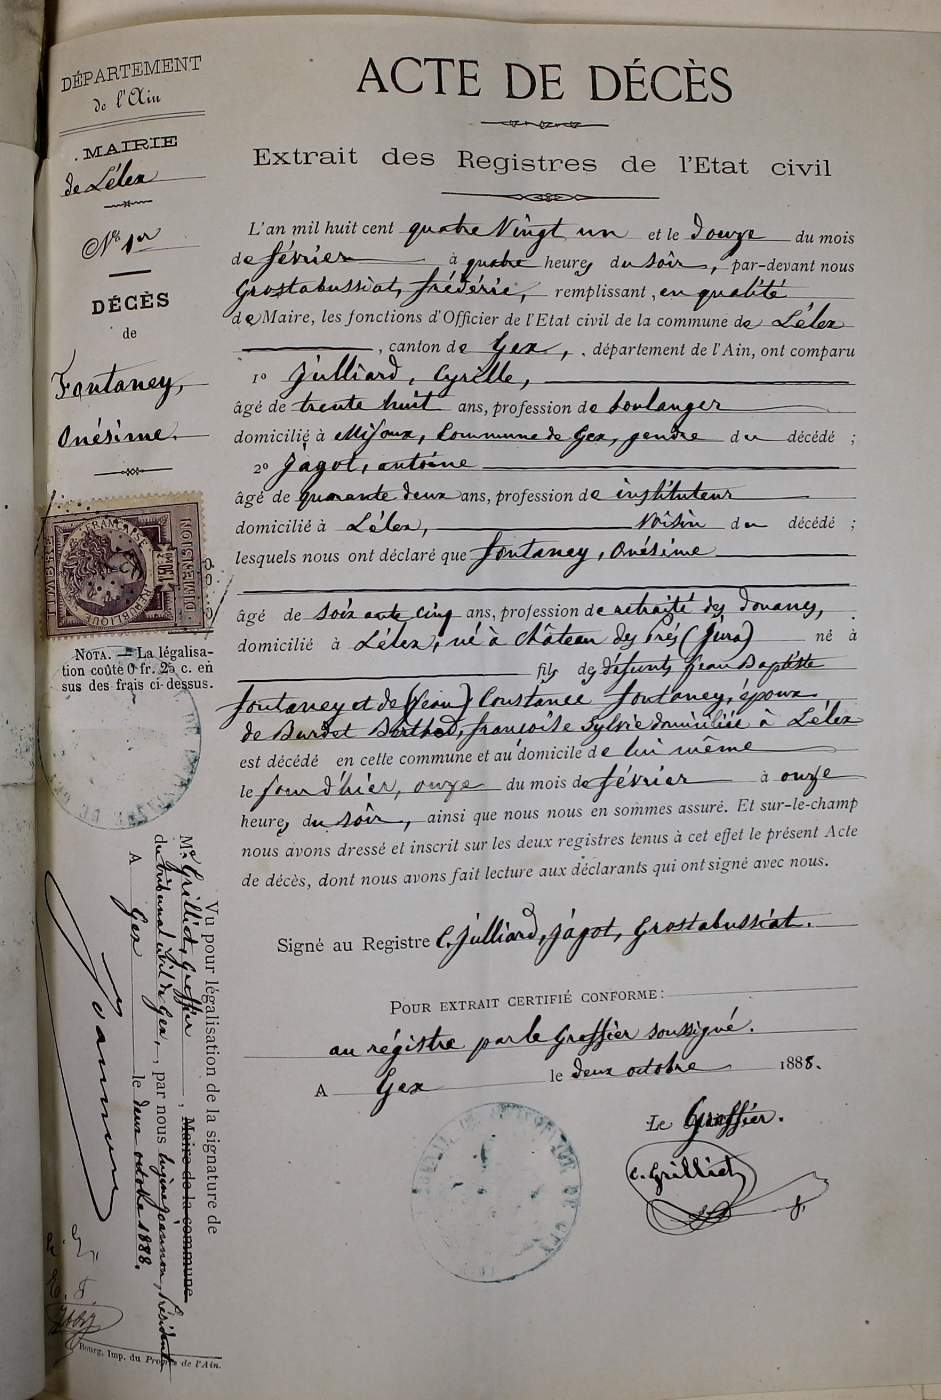 DÉPARTEMENT
de l'Ain
MAIRIE
de Lélex
Nº 1er
DÉCÈS
de
Fontaney,
Onésime.
RÉPUBLIQUE FRANÇAISE
TIMBRE
DIMENSION
NOTA. — La légalisa-
tion coûte 0 fr. 25 c. en
sus des frais ci-dessus.
ACTE DE DÉCÈS
Extrait des Registres de l'Etat civil
L'an mil huit cent quatre Vingt un et le douze du mois
de février à quatre heures du soir, par-devant nous
Grostabussiat, frédéric, remplissant, en qualité
de Maire, les fonctions d'Officier de l'Etat civil de la commune de Lélex
, canton de Gex, département de l'Ain, ont comparu
1º Julliard, Cyrille,
âgé de trente huit ans, profession de boulanger
domicilié à Mijoux, Commune de Gex, gendre du décédé ;
2º Jagot, antoine
âgé de quarante deux ans, profession de instituteur
domicilié à Lélex, Voisin du décédé ;
lesquels nous ont déclaré que fontaney, Onésime
âgé de soixante cinq ans, profession de retraité des Douanes,
domicilié à Lélex, né à Château des prés (Jura) né à
fils des défunts Jean Baptiste
fontaney et de (Jean) Constance fontaney, époux
de Burdet Berthod, françoise Sylvie domiciliée à Lélex
est décédé en cette commune et au domicile de lui même
le jour d'hier, onze du mois de février à onze
heures du soir, ainsi que nous nous en sommes assuré. Et sur-le-champ
nous avons dressé et inscrit sur les deux registres tenus à cet effet le présent Acte
de décès, dont nous avons fait lecture aux déclarants qui ont signé avec nous.
Signé au Registre C. Julliard, Jagot, Grostabussiat.
POUR EXTRAIT CERTIFIÉ CONFORME:
au régistre par le Greffier soussigné.
A Gex le deux octobre 1888.
Le Greffier.
C. Grilliet
Vu pour légalisation de la signature de
Me Grilliet, Greffier, Maire de la commune
du tribunal civil de Gex, par nous Eugène Joannon, Président
A Gex le deux octobre 1888.
Joannon
Bourg, Imp. du Progrès de l'Ain.